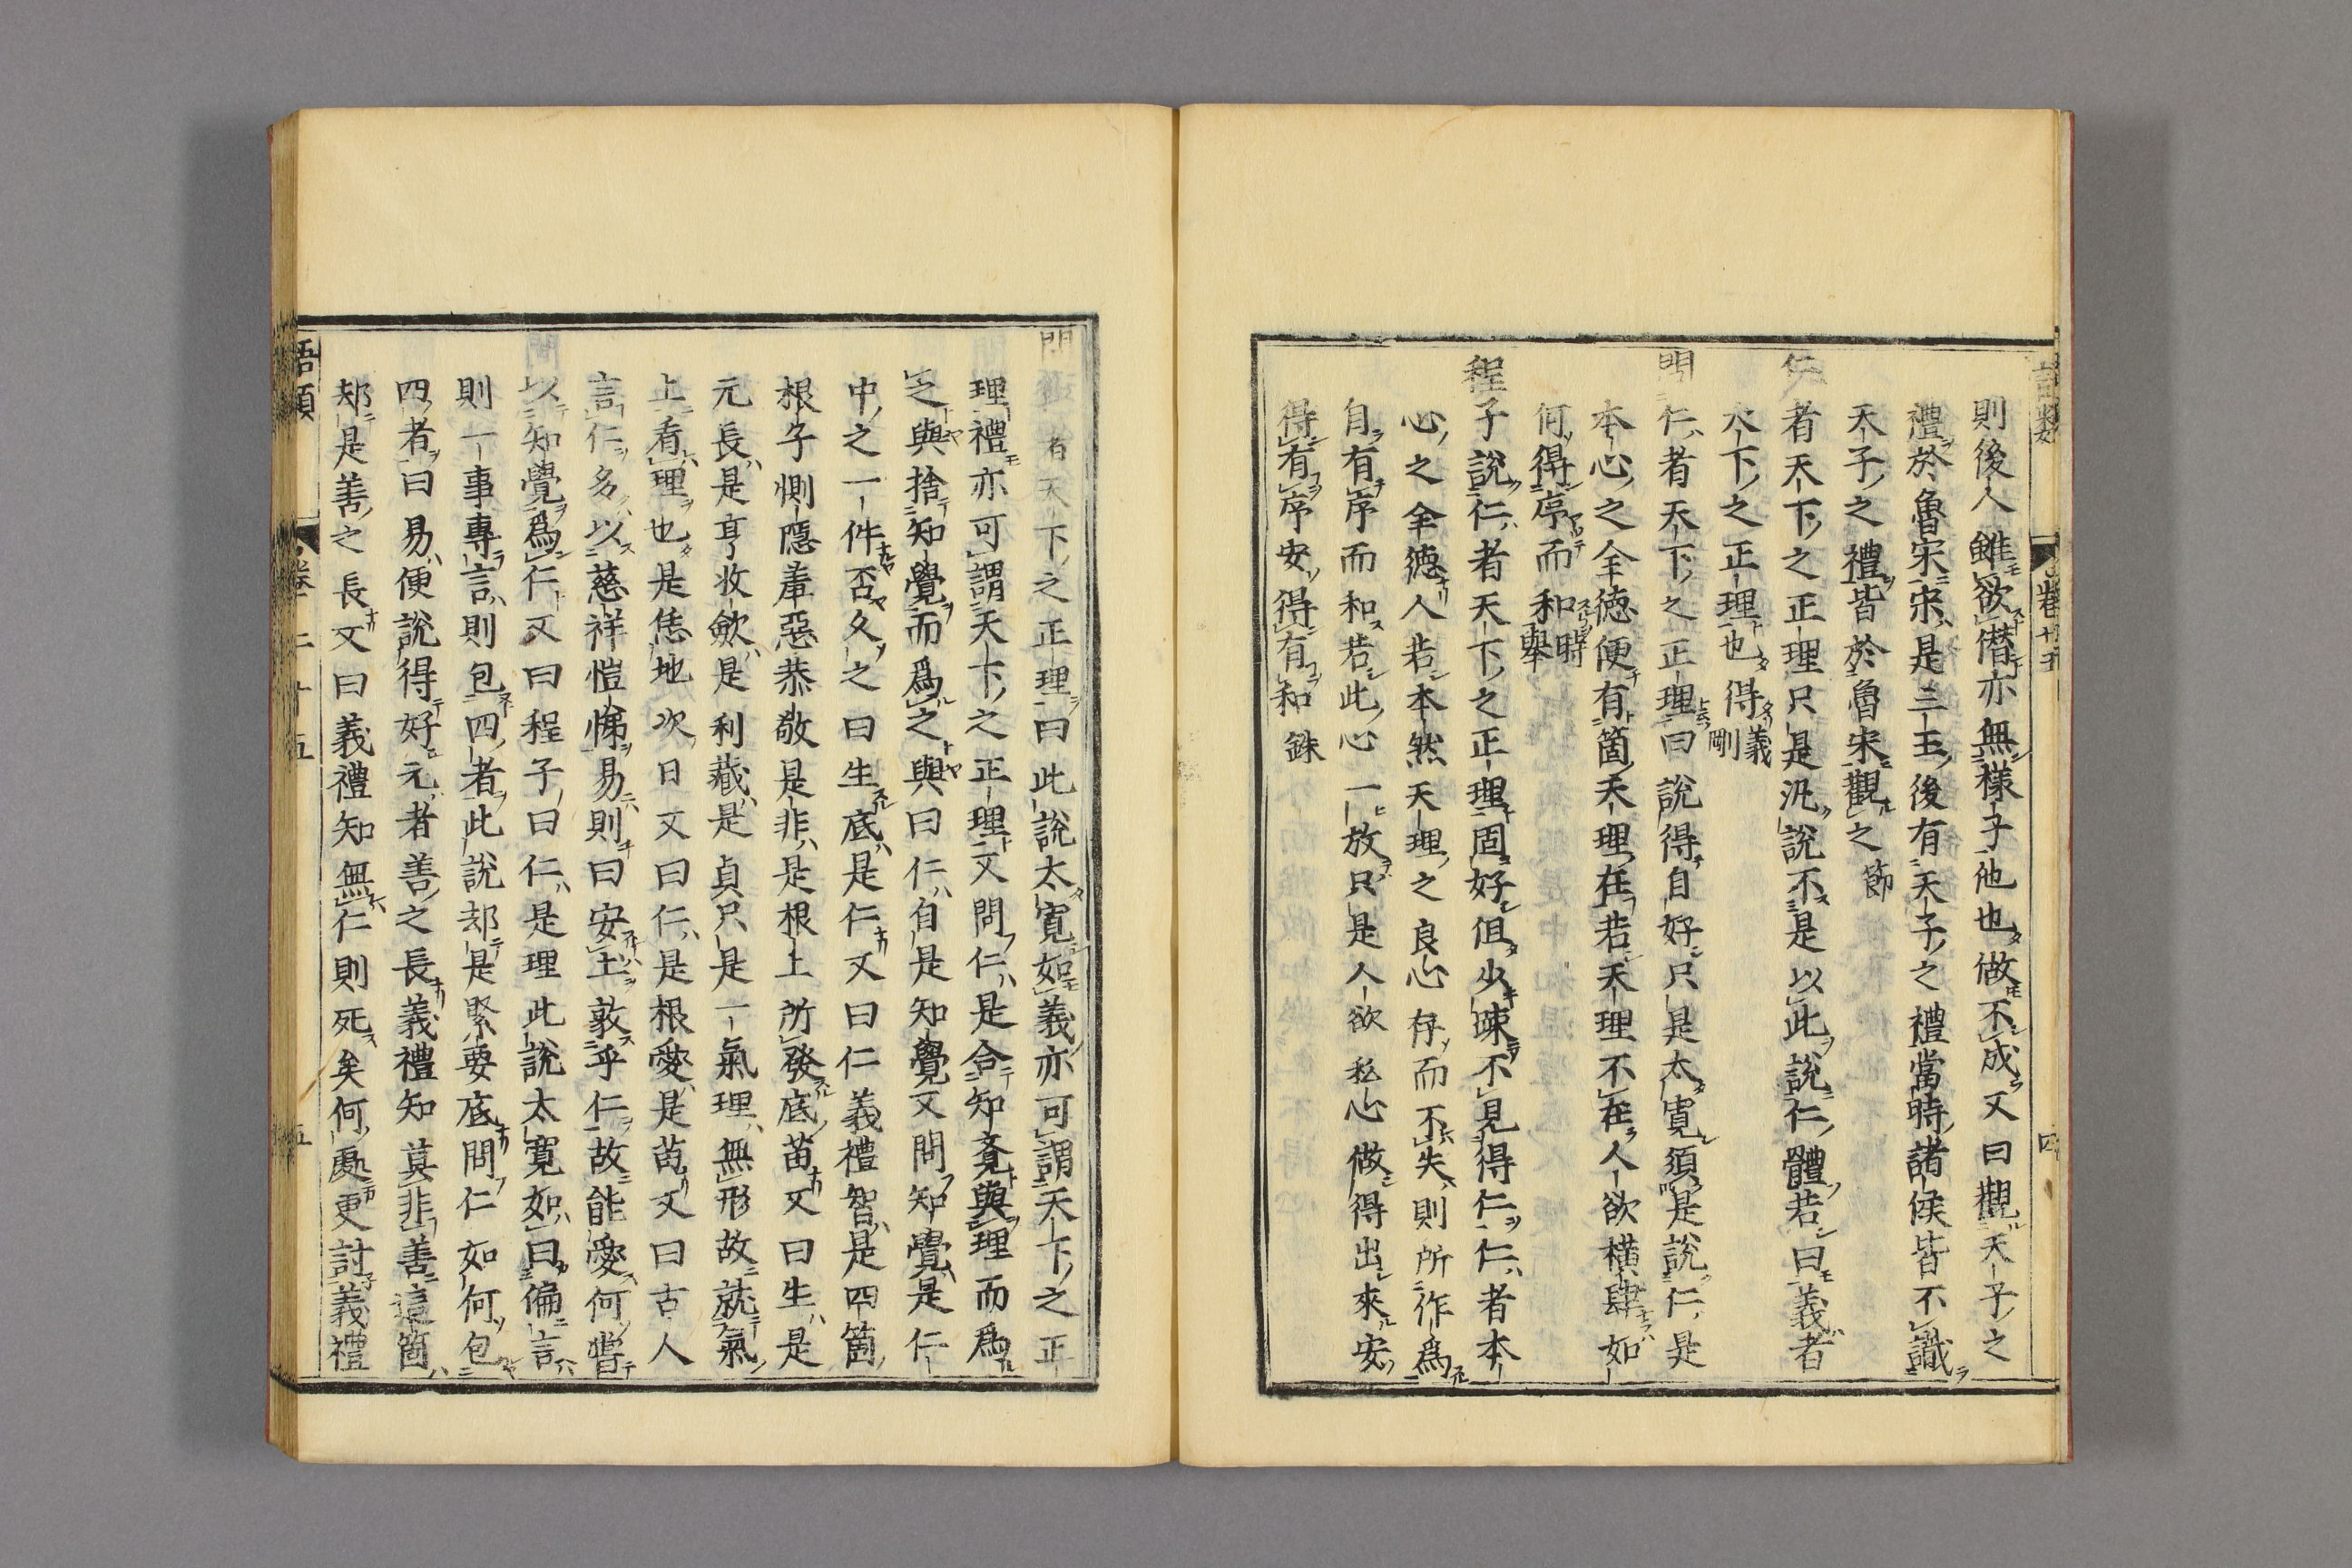 語類 卷廿五 四
則後人雖欲僭亦無樣子他也做不成又曰觀天子之
禮於魯宋宋是三王後有天子之禮當時諸侯皆不識
天子之禮皆於魯宋觀之 節
仁者天下之正理只是汎說不是以此說仁體若曰義者
天下之正理也得 義剛
問仁者天下之正理曰說得自好只是太寬須是說仁是
本心之全德便有箇天理在若天理不在人欲橫肆如
何得序而和 時舉
程子說仁者天下之正理固好但少疎不見得仁仁者本
心之全德人若本然天理之良心存而不失則所作爲
自有序而和若此心一放只是人欲私心做得出來安
得有序安得有和 銖
問仁者天下之正理曰此說太寬如義亦可謂天下之正
理禮亦可謂天下之正理又問仁是合知覺與理而爲
之與捨知覺而爲之與曰仁自是知覺又問知覺是仁
中之一件否久之曰生底是仁又曰仁義禮智是四箇
根子惻隱羞惡恭敬是非是根上所發底苗又曰生是
元長是亨收歛是利藏是貞只是一氣理無形故就氣
上看理也是恁地次日又曰仁是根愛是苗又曰古人
言仁多以慈祥愷悌易則曰安土敦乎仁故能愛何嘗
以知覺爲仁又曰程子曰仁是理此說太寬如曰偏言
則一事專言則包四者此說却是緊要底問仁如何包
四者曰易便說得好元者善之長義禮知莫非善這箇
却是善之長又曰義禮知無仁則死矣何處更討義禮
語類 卷二十五 五